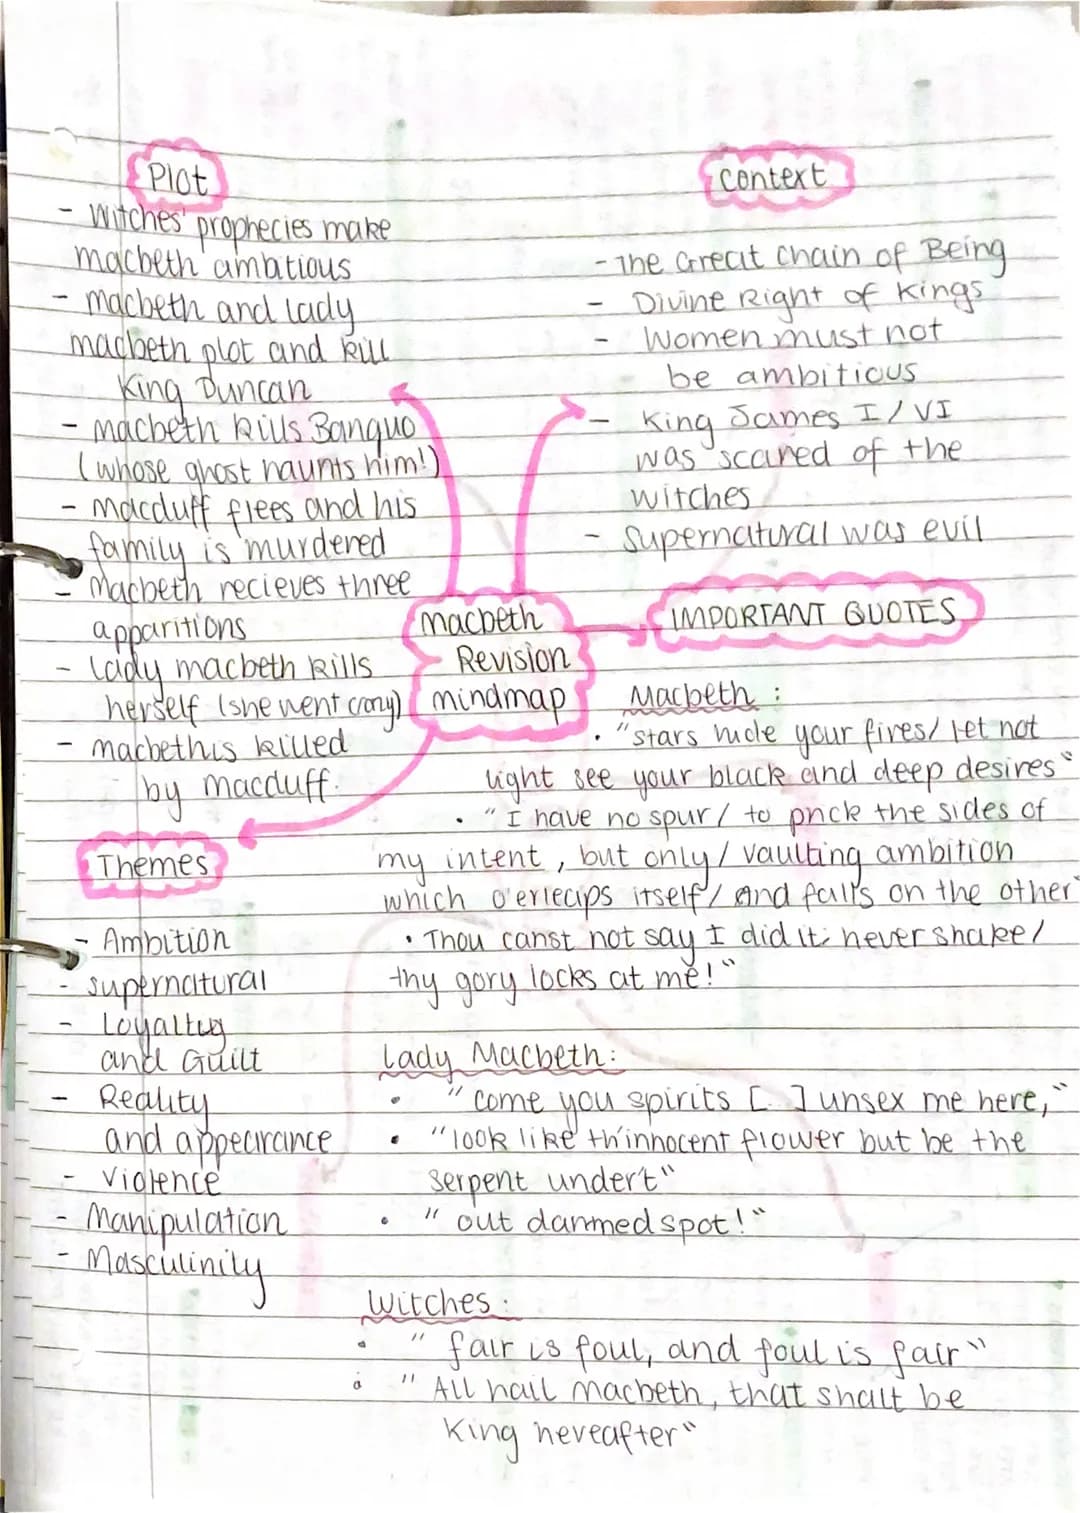 Plot
- Witches' prophecies make
macbeth ambatious
- macbeth and lady
macbeth plot and kill
King Duncan
- macbeth kills Banquo
(whose ghost haunts him!)
- macduff flees and his
family is murdered
- Macbeth recieves three
apparitions
- lady macbeth kills
herself (she went crazy)
- macbeth is killed
by macduff.
Context
- The Great Chain of Being
- Divine Right of Kings
- Women must not
be ambitious
- King James I/VI
was scared of the
witches
- Supernatural was evil
Macbeth
Revision
mindmap
IMPORTANT QUOTES
Macbeth :
• "stars hide your fires/ let not
light see your black and deep desires"
• "I have no spur/ to prick the sides of
my intent, but only/ vaulting ambition
which o'erleaps itself/ and falls on the other"
• Thou canst not say I did it: never shake/
thy gory locks at me!"
Lady Macbeth:
• "come you spirits [...] unsex me here,"
• "look like th'innocent flower but be the
serpent undert"
• "out danmed spot!"
Witches:
• "fair is foul, and foul is fair"
• "All hail Macbeth, that shalt be
King hereafter"
Themes
- Ambition
- supernatural
- Loyalty
and Guilt
- Reality
and appearance
- violence
- Manipulation
- Masculinity